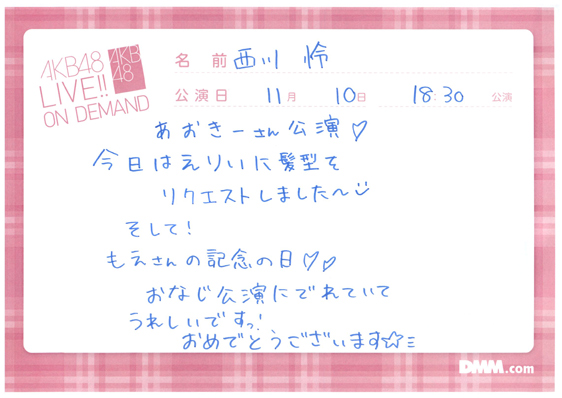 AKB48
LIVE!!
ON DEMAND
AKB
48
名 前 西川 怜
公演日 11月 10日 18:30 公演
あおきーさん公演♡
今日はえりぃに髪型を
リクエストしました〜
そして!
もえさんの記念の日♡♡
おなじ公演にでれていて
うれしいですっ!
おめでとうございます☆
DMM.com